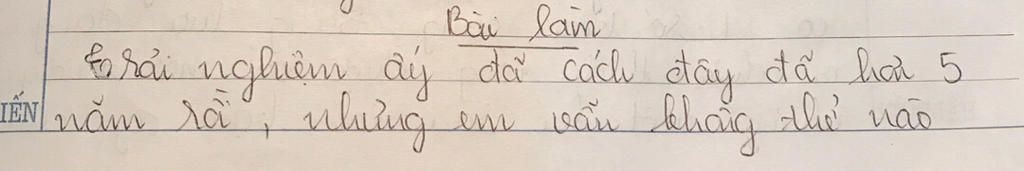 Bài làm
Trải nghiệm ấy đã cách đây đã hơn 5
IẾN
năm rồi, nhưng em vẫn không thể nào